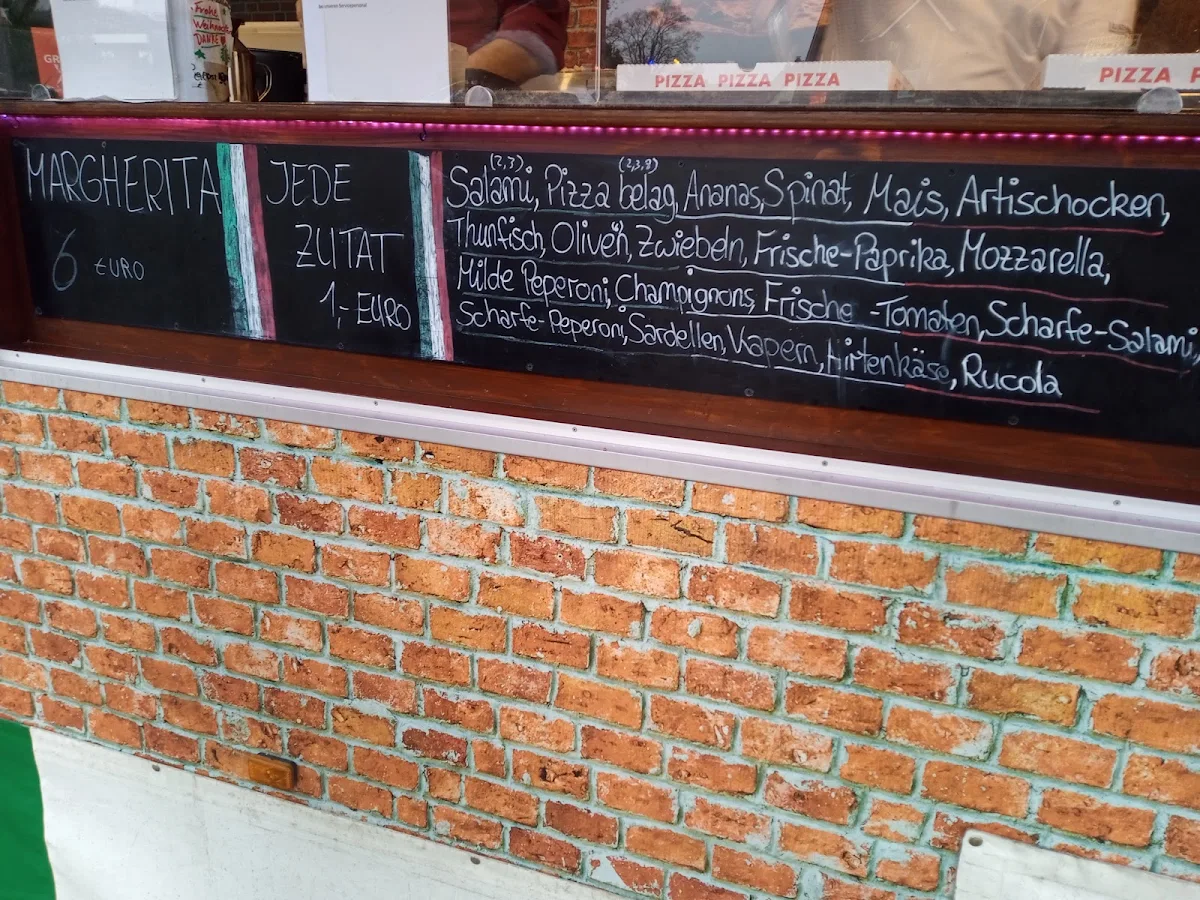 Frohe
DANKE
PIZZA PIZZA PIZZA
PIZZA
MARGHERITA
6 EURO
JEDE
ZUTAT
1,- EURO
(2,3) (2,3,8)
Salami, Pizza belag, Ananas, Spinat, Mais, Artischocken,
Thunfisch, Oliven, Zwiebeln, Frische-Paprika, Mozzarella,
Milde Peperoni, Champignons, Frische -Tomaten, Scharfe-Salami,
Scharfe-Peperoni, Sardellen, Kapern, Hirtenkäse, Rucola